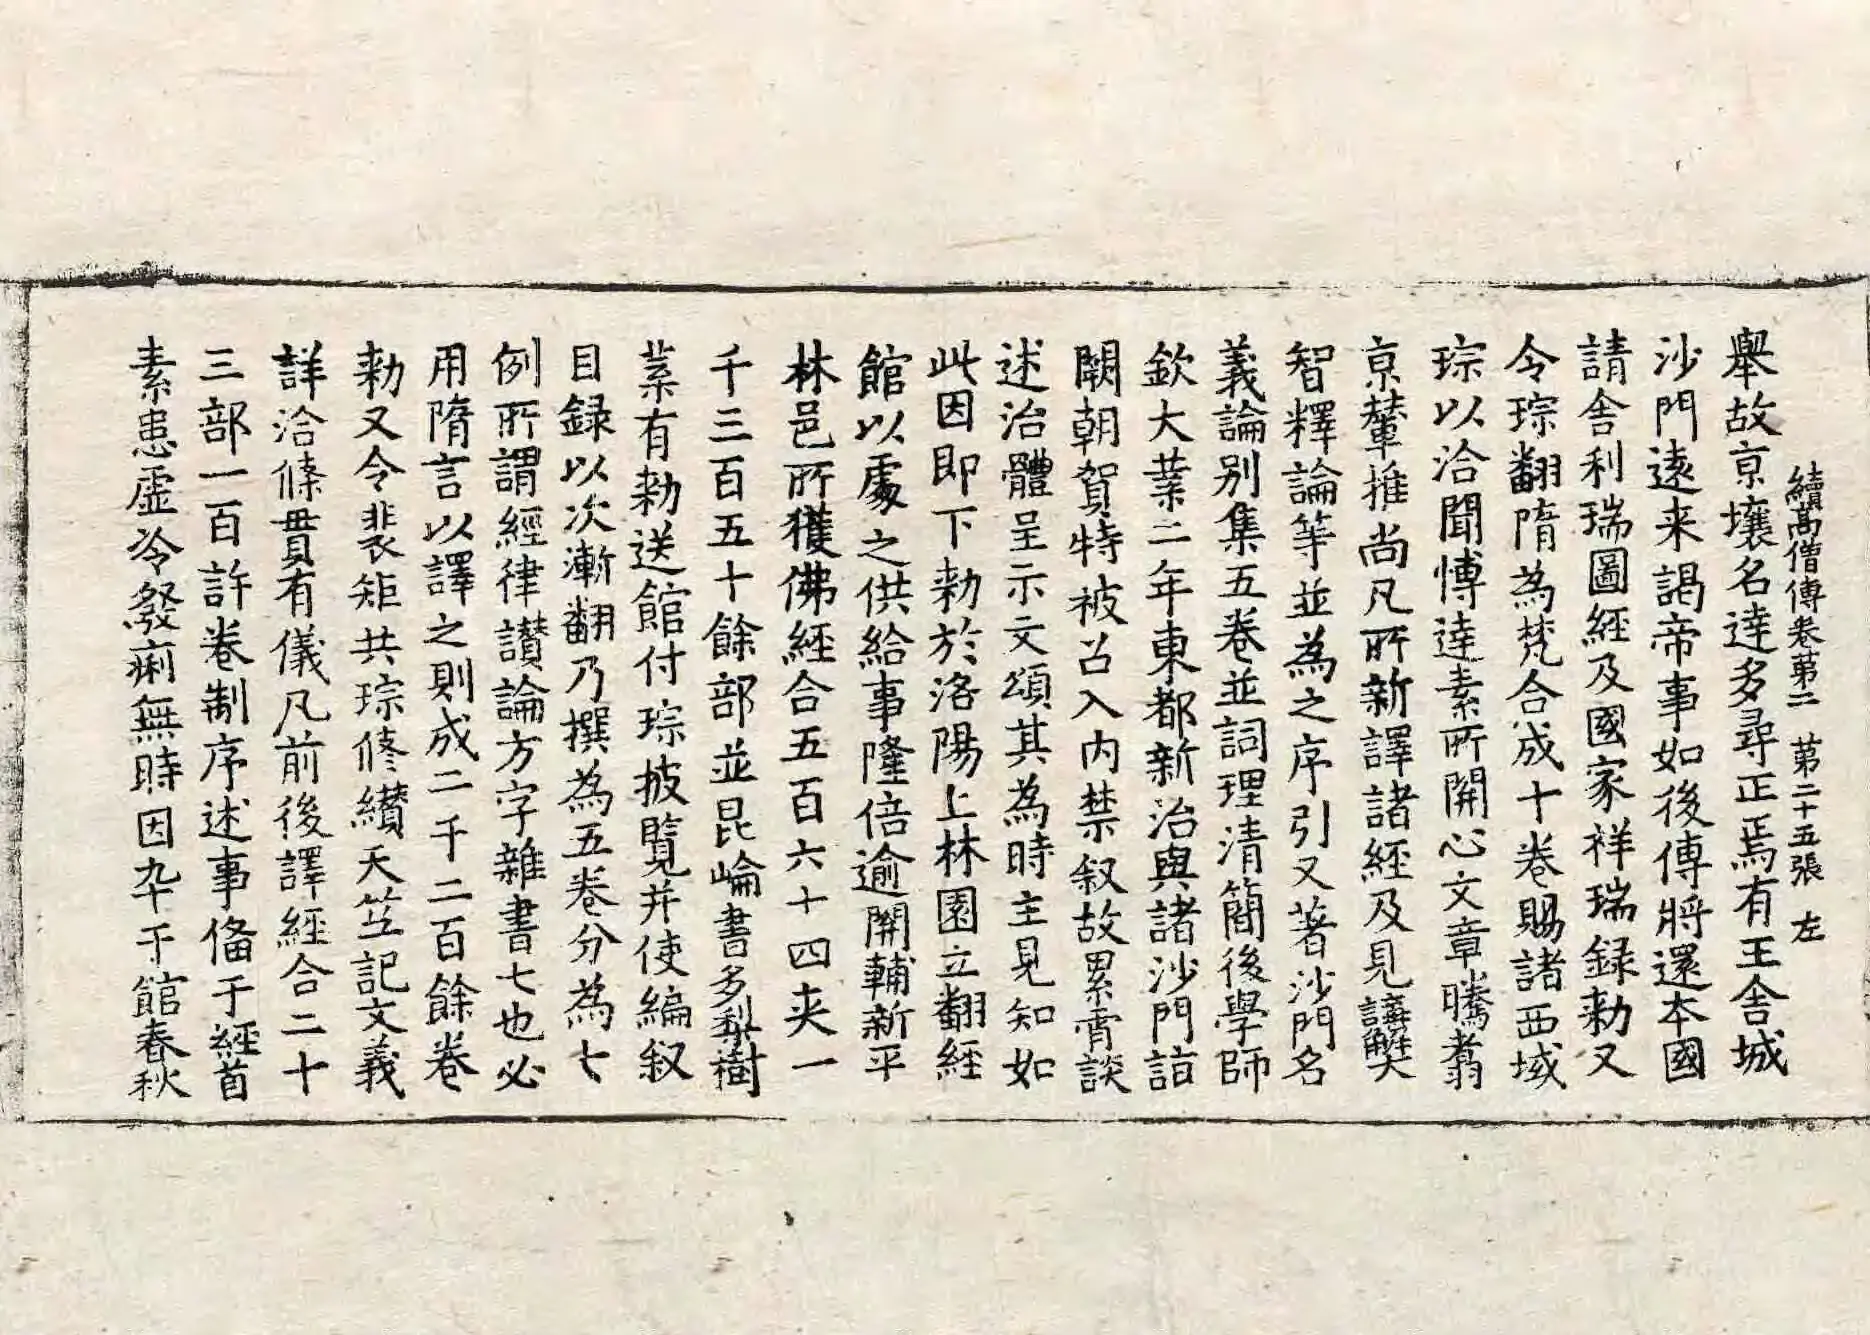 續高僧傳卷第二 第二十五張 左
舉故京壤名達多尋正焉有王舍城
沙門遠来謁帝事如後傳將還本國
請舍利瑞圖經及國家祥瑞録勑又
令琮翻隋為梵合成十卷賜諸西域
琮以洽聞博達素所開心文章騰翥
京輦推尚凡所新譯諸經及見講解大
智釋論等並為之序引又著沙門名
義論别集五卷並詞理清簡後學師
欽大業二年東都新治與諸沙門詣
闕朝賀特被召入内禁叙故累霄談
述治體呈示文頌其為時主見知如
此因即下勑於洛陽上林園立翻經
館以處之供給事隆倍逾關輔新平
林邑所獲佛經合五百六十四夹一
千三百五十餘部並昆崘書多梨樹
葉有勑送館付琮披覽并使編叙
目録以次漸翻乃撰為五卷分為七
例所謂經律讃論方字雜書七也必
用隋言以譯之則成二千二百餘卷
勑又令裴矩共琮修纉天笁記文義
詳洽條貫有儀凡前後譯經合二十
三部一百許卷制序述事俻于經首
素患虚冷發痢無時因卒于館春秋